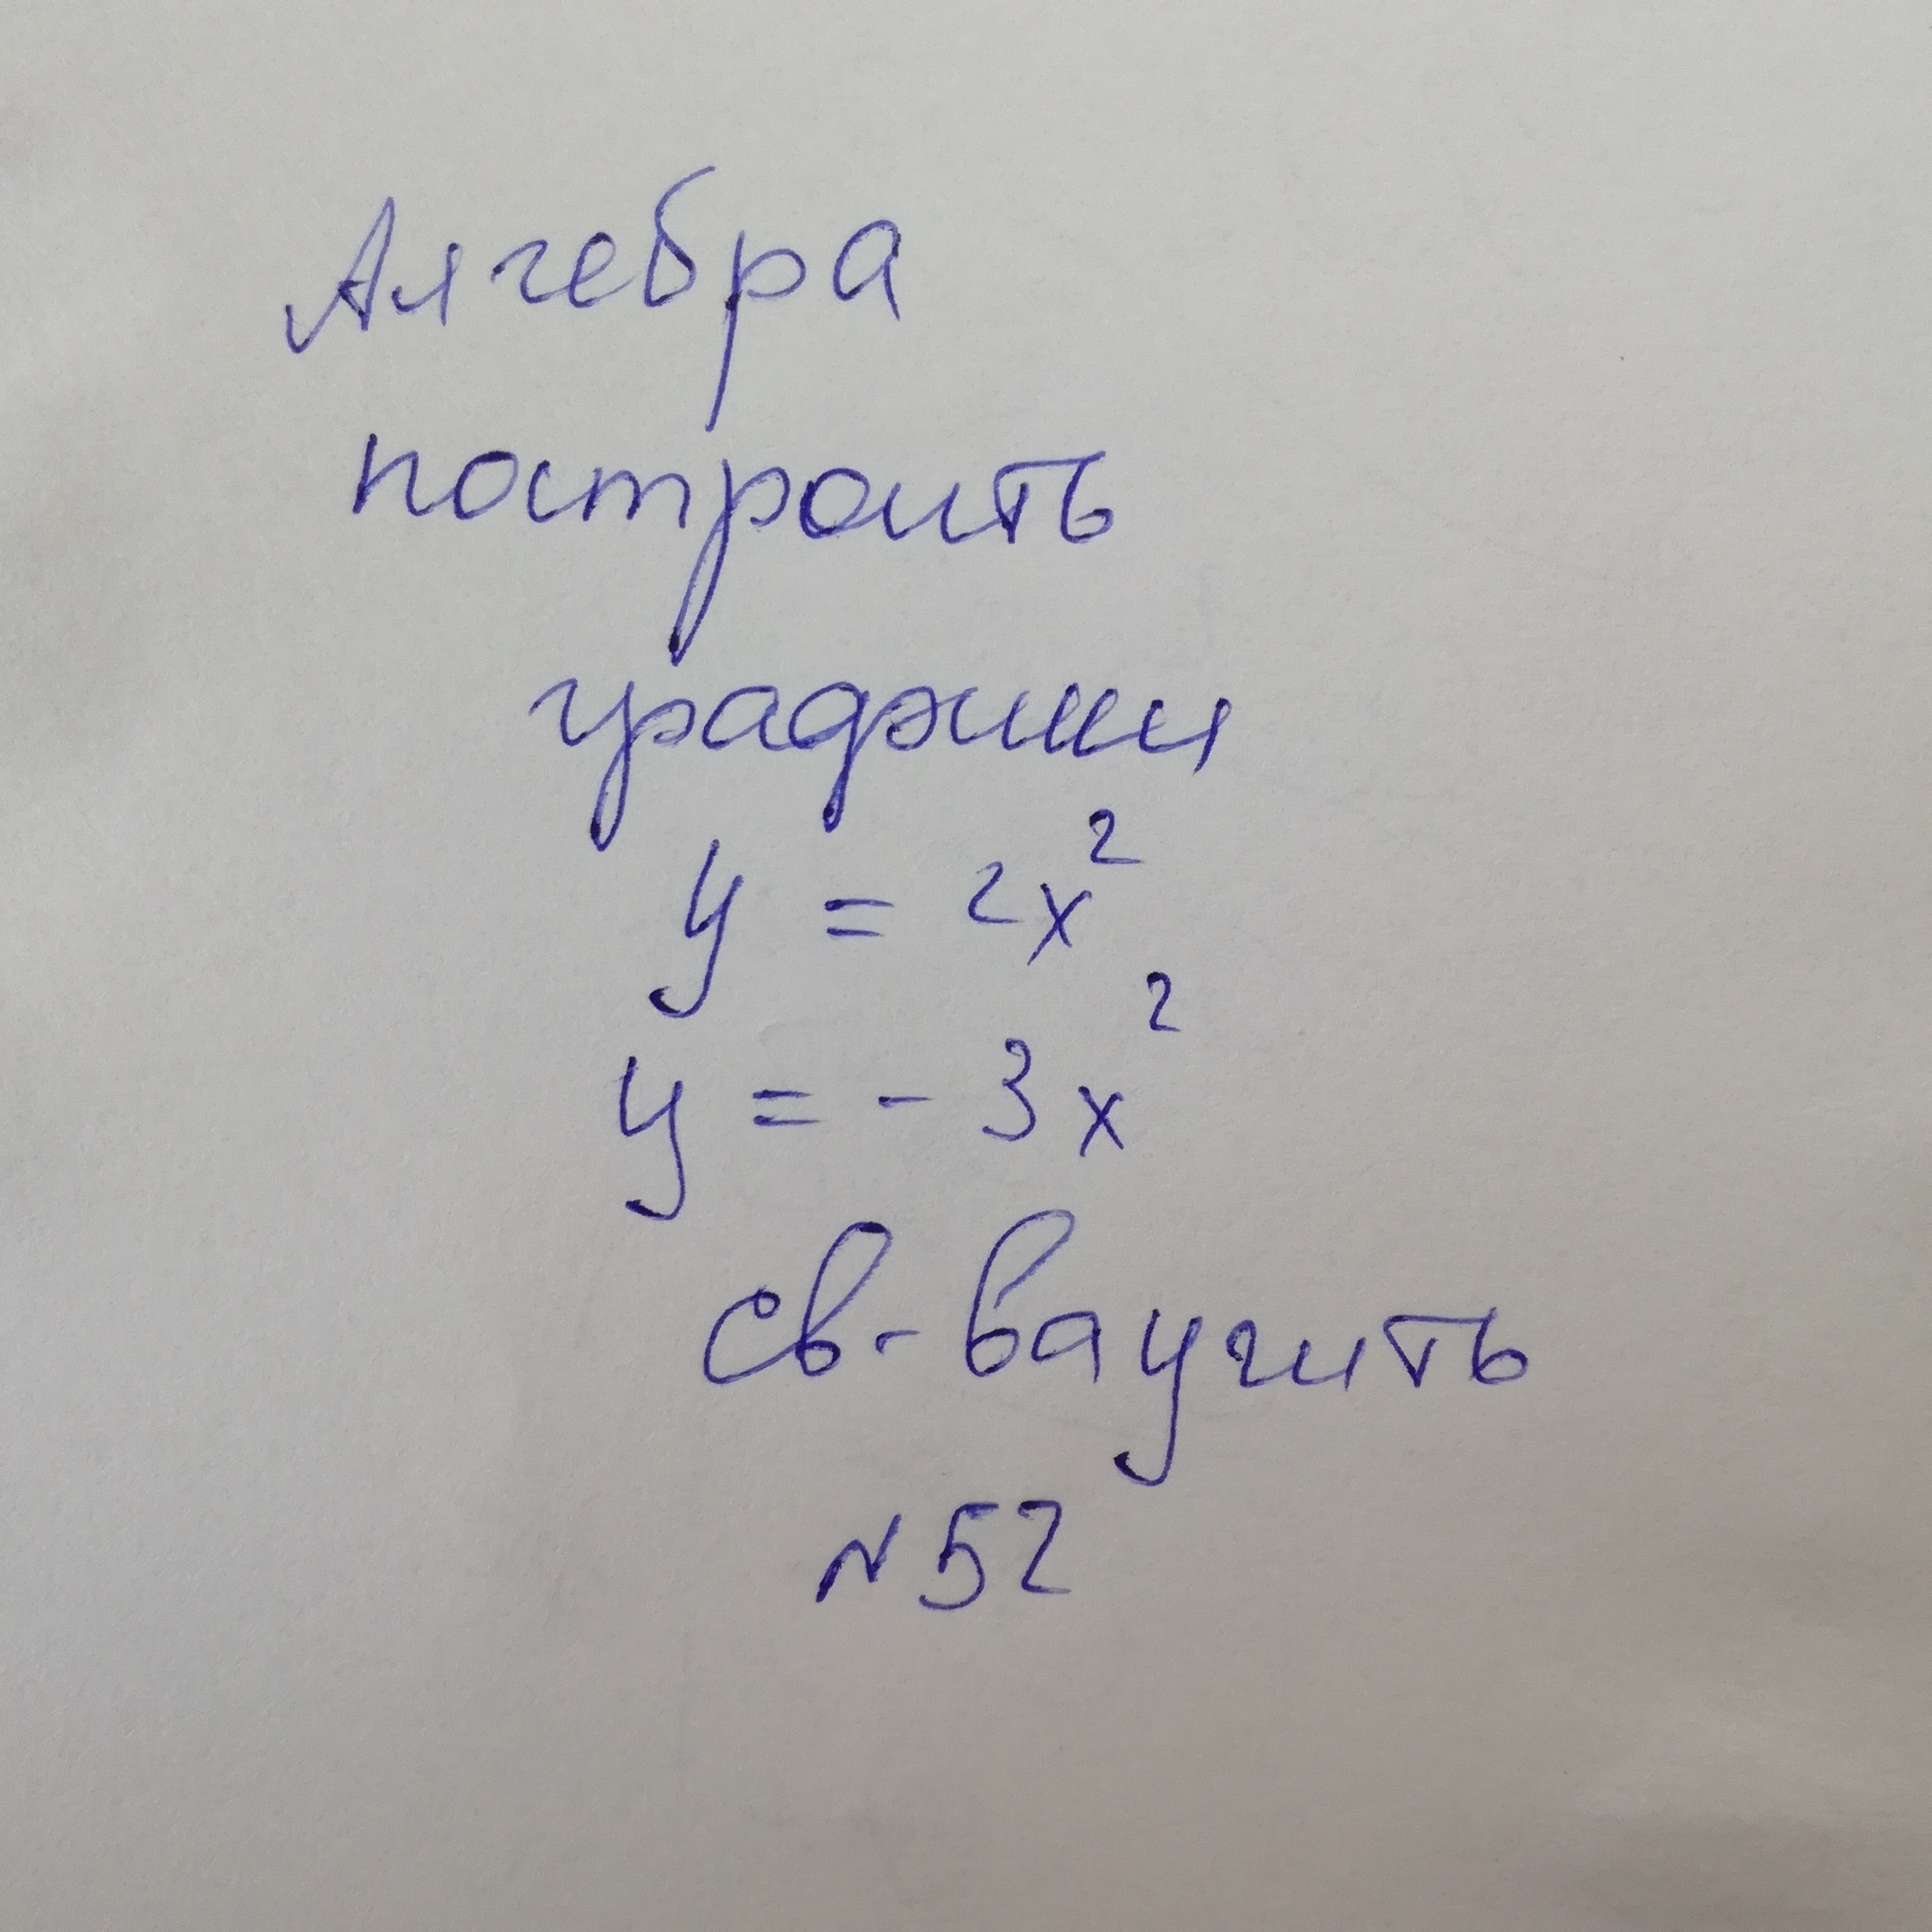 Алгебра
построить
графики
y = 2x²
y = - 3x²
св-ва учить
N 52